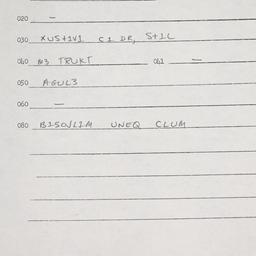 020 —
030 XUS+1V1 C1 DR, S+1L
040 N3 TRUKT 061 —
050 AGUL3
060 —
080 B1SO/L1M UNEQ CLUM